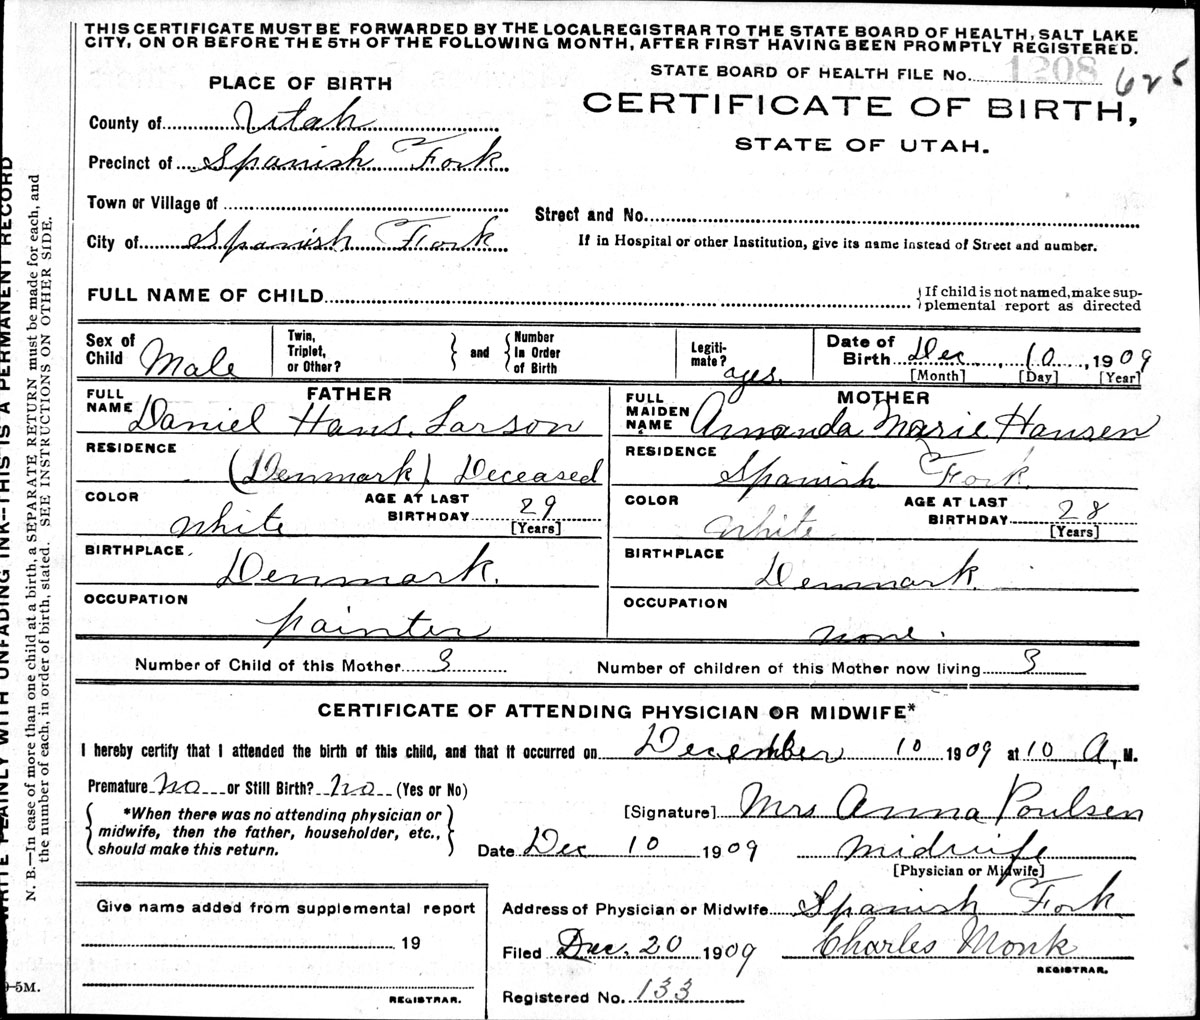 THIS CERTIFICATE MUST BE FORWARDED BY THE LOCAL REGISTRAR TO THE STATE BOARD OF HEALTH, SALT LAKE
CITY, ON OR BEFORE THE 5TH OF THE FOLLOWING MONTH, AFTER FIRST HAVING BEEN PROMPTLY REGISTERED.
STATE BOARD OF HEALTH FILE No. 1208 625
PLACE OF BIRTH
CERTIFICATE OF BIRTH,
STATE OF UTAH.
County of Utah
Precinct of Spanish Fork
Town or Village of
Street and No.
City of Spanish Fork
If in Hospital or other Institution, give its name instead of Street and number.
FULL NAME OF CHILD
{If child is not named, make sup-
plemental report as directed
Sex of Child Male
Twin, Triplet, or Other? } and { Number in Order of Birth
Legiti-mate? yes.
Date of Birth Dec 10, 1909
[Month] [Day] [Year]
FATHER
FULL NAME Daniel Hans. Larson
RESIDENCE
(Denmark) Deceased
COLOR White
AGE AT LAST BIRTHDAY 29
[Years]
BIRTHPLACE
Denmark.
OCCUPATION
painter
MOTHER
FULL MAIDEN NAME Amanda Marie Hansen
RESIDENCE
Spanish Fork
COLOR White
AGE AT LAST BIRTHDAY 28
[Years]
BIRTHPLACE
Denmark
OCCUPATION
none.
Number of Child of this Mother 3
Number of children of this Mother now living 3
CERTIFICATE OF ATTENDING PHYSICIAN OR MIDWIFE*
I hereby certify that I attended the birth of this child, and that it occurred on December 10 1909 at 10 A, M.
Premature no or Still Birth? no (Yes or No)
{*When there was no attending physician or
midwife, then the father, householder, etc.,
should make this return.}
[Signature] Mrs Anna Poulsen
Date Dec 10 1909 Midwife
[Physician or Midwife]
Give name added from supplemental report
19
REGISTRAR.
Address of Physician or Midwife Spanish Fork
Filed Dec. 20 1909 Charles Monk
REGISTRAR.
Registered No. 133
WRITE PLAINLY WITH UNFADING INK--THIS IS A PERMANENT RECORD
N. B.—In case of more than one child at a birth, a SEPARATE RETURN must be made for each, and
the number of each, in order of birth, stated. SEE INSTRUCTIONS ON OTHER SIDE.
-5M.